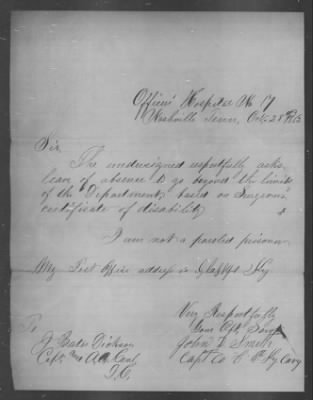 Officers Hospital No 17
Nashville Tenn, Oct 28th
Sir
The undersigned respectfully asks,
leave of absence to go beyond the limits
of the Department, based on Surgeons
certificate of disability
I am not a paroled prisoner
My Post Office address is Ky
Very Respectfully
Your Obt Servt
John L Smith
Capt Co C Ky Cavy
To
J Bates Dickson
Capt and A A Genl